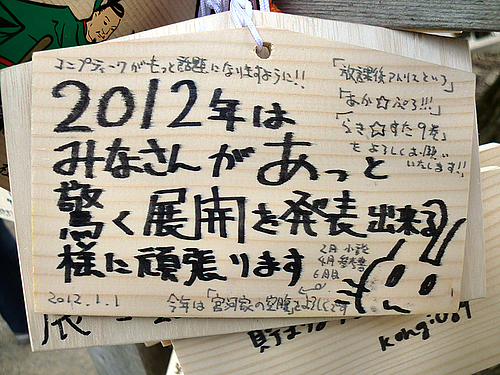 コンプティークがもっと話題になりますように!!
「放課後さんりこという」
「あか☆ぷろ!!!」
「らき☆すた9巻」
をよろしくお願い
いたします!!
2012年は
みなさんがあっと
驚く展開を発表出来る
様に頑張ります
2月 小説
4月 参考書
6月目
2012.1.1
今年は「宮河家の空腹」もよろしくです